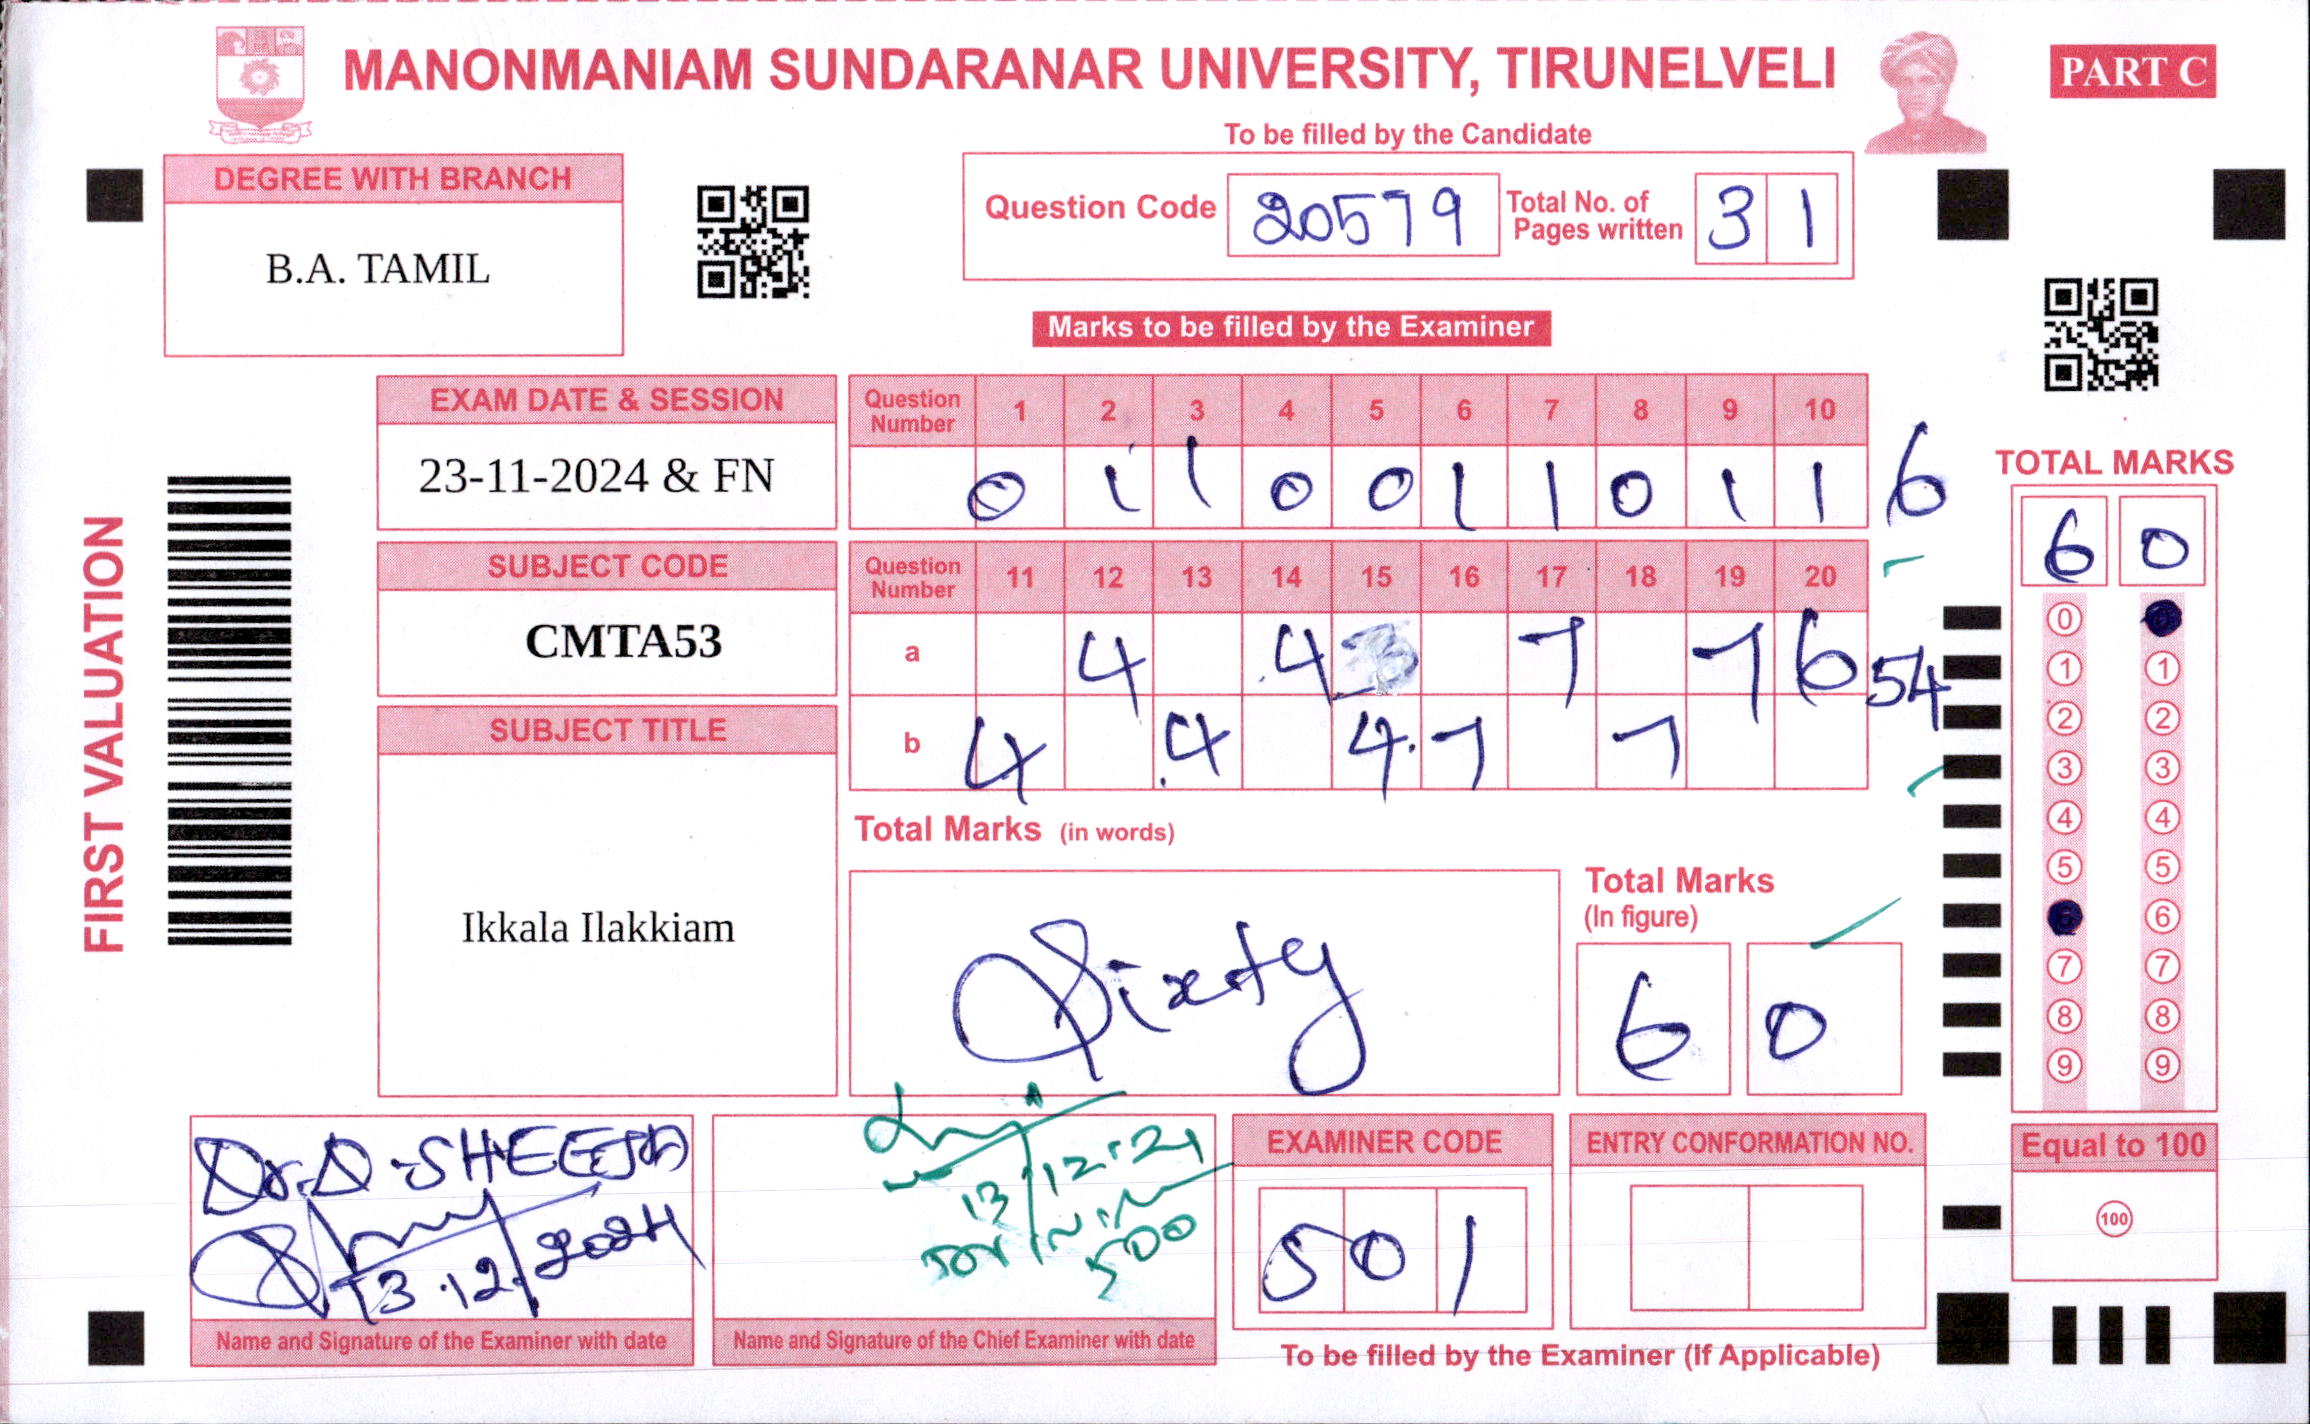 MANONMANIAM SUNDARANAR UNIVERSITY, TIRUNELVELI
PART C
To be filled by the Candidate
DEGREE WITH BRANCH
B.A. TAMIL
Question Code 20579 Total No. of Pages written 3 1
Marks to be filled by the Examiner
FIRST VALUATION
EXAM DATE & SESSION
23-11-2024 & FN
SUBJECT CODE
CMTA53
SUBJECT TITLE
Ikkala Ilakkiam
Question Number 1 2 3 4 5 6 7 8 9 10
0 1 1 0 0 1 1 0 1 1 6
Question Number 11 12 13 14 15 16 17 18 19 20
a 4 4 7 7 6 54
b 4 4 4 7 7
Total Marks (in words)
Sixty
Total Marks
(In figure)
6 0
TOTAL MARKS
6 0
0
1 1
2 2
3 3
4 4
5 5
6
7 7
8 8
9 9
Equal to 100
100
Dr. D. SHEEJA
13.12.2024
Name and Signature of the Examiner with date
13.12.24
500
Name and Signature of the Chief Examiner with date
EXAMINER CODE
5 0 1
ENTRY CONFORMATION NO.
To be filled by the Examiner (If Applicable)